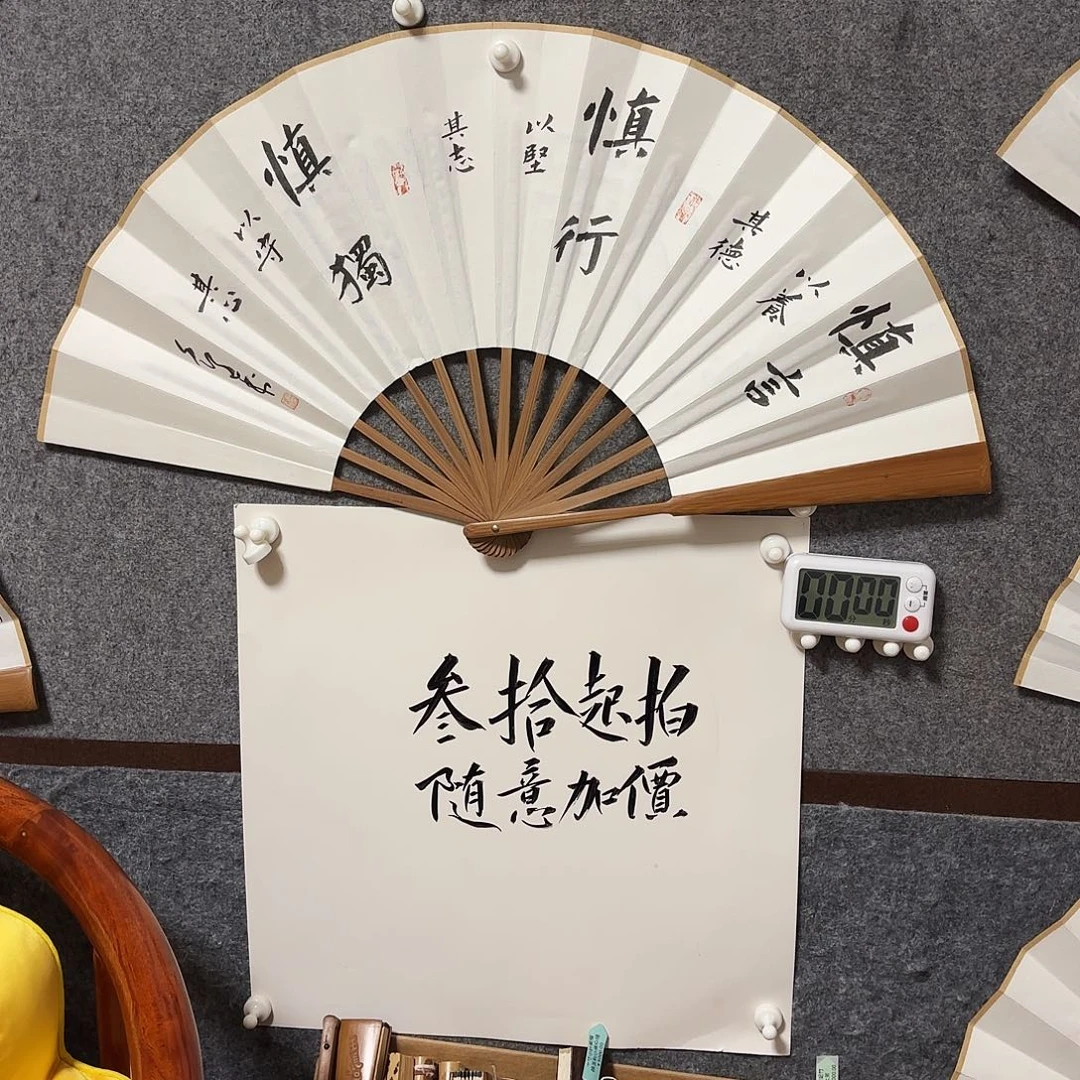 慎言
以養
其德
慎行
以堅
其志
慎獨
以守
其心
叁拾起拍
隨意加價
00 00